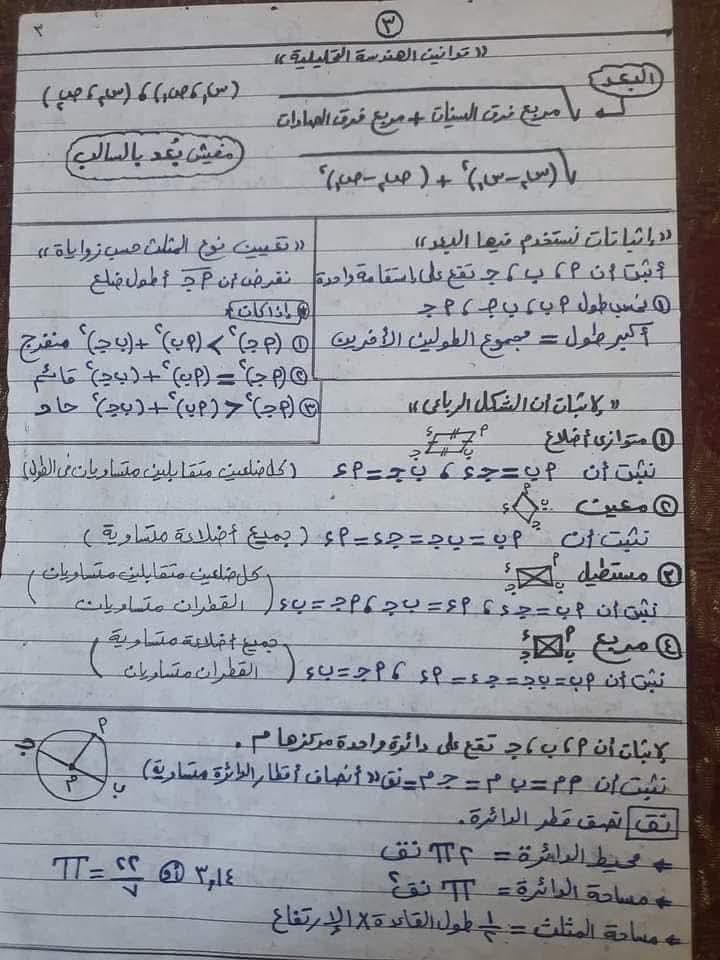 ٣
٣
« قوانين الهندسة التحليلية »
البعد
(س١، ص١)، (س٢، ص٢)
√ مربع فرق السينات + مربع فرق الصادات
مفيش بُعد بالسالب
√ (س٢ - س١)² + (ص٢ - ص١)²
« إثباتات نستخدم فيها البعد »
أثبت أن P، ب، جـ تقع على إستقامة واحدة
① نحسب طول P ب، ب جـ، P جـ
أكبر طول = مجموع الطولين الأخرين
« تعيين نوع المثلث حسب زواياة »
نفرض أن P جـ أطول ضلع
* إذا كان *
① (P جـ)² > (P ب)² + (ب جـ)² منفرج
② (P جـ)² = (P ب)² + (ب جـ)² قائم
③ (P جـ)² < (P ب)² + (ب جـ)² حاد
« لإثبات أن الشكل الرباعى »
① متوازى أضلاع
P ب جـ ء
نثبت أن P ب = جـ ء، ب جـ = P ء (كل ضلعين متقابلين متساويان فى الطول)
② معين
P ب جـ ء
نثبت أن P ب = ب جـ = جـ ء = P ء (جميع أضلاعة متساوية)
③ مستطيل
P ب جـ ء
نثبت أن P ب = جـ ء، P ء = ب جـ، P جـ = ب ء (كل ضلعين متقابلين متساويان
القطران متساويان)
④ مربع
P ب جـ ء
نثبت أن P ب = ب جـ = جـ ء = P ء، P جـ = ب ء (جميع أضلاعة متساوية
القطران متساويان)
لإثبات أن P، ب، جـ تقع على دائرة واحدة مركزها م .
نثبت أن P م = ب م = جـ م = نق « أنصاف أقطار الدائرة متساوية)
P جـ م ب
نق نصف قطر الدائرة .
* محيط الدائرة = ٢ π نق
* مساحة الدائرة = π نق²
π = ٢٢/٧ أو ٣,١٤
* مساحة المثلث = ١/٢ طول القاعدة × الإرتفاع